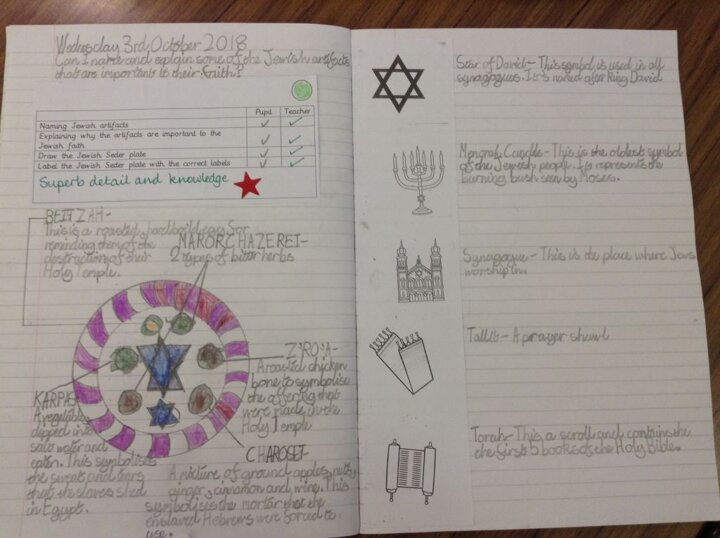 Wednesday 3rd October 2018
Can I name and explain some of the Jewish artifacts
that are important to their faith?
Pupil Teacher
Naming Jewish artifacts
Explaining why the artifacts are important to the
Jewish faith
Draw the Jewish Seder plate
Label the Jewish Seder plate with the correct labels
Superb detail and knowledge
BEITZAH-
This is a roasted, hardboiled egg for
reminding them of the
destruction of their
Holy Temple.
MAROR CHAZEREI-
2 types of bitter herbs
Z'ROJA-
A roasted chicken
bone to symbolise
the offering that
were made in the
Holy Temple
KARPAS
A vegetable
dipped into
salt water and
eaten. This symbolises
the sweat and tears
that the slaves shed
in Egypt.
CHAROSET-
A mixture of ground apples, nuts,
ginger, cinnamon and wine. This
symbolises the mortar that the
enslaved Hebrews were forced to
use.
Star of David- This symbol is used in all
synagogues. It is named after King David
Menorah Candle- This is the oldest symbol
of the Jewish people. It represents the
burning bush seen by Moses.
Synagogue- This is the place where Jews
worship in.
Tallit- A prayer shawl
Torah- This a scroll and contains the
the first 5 books of the Holy Bible.